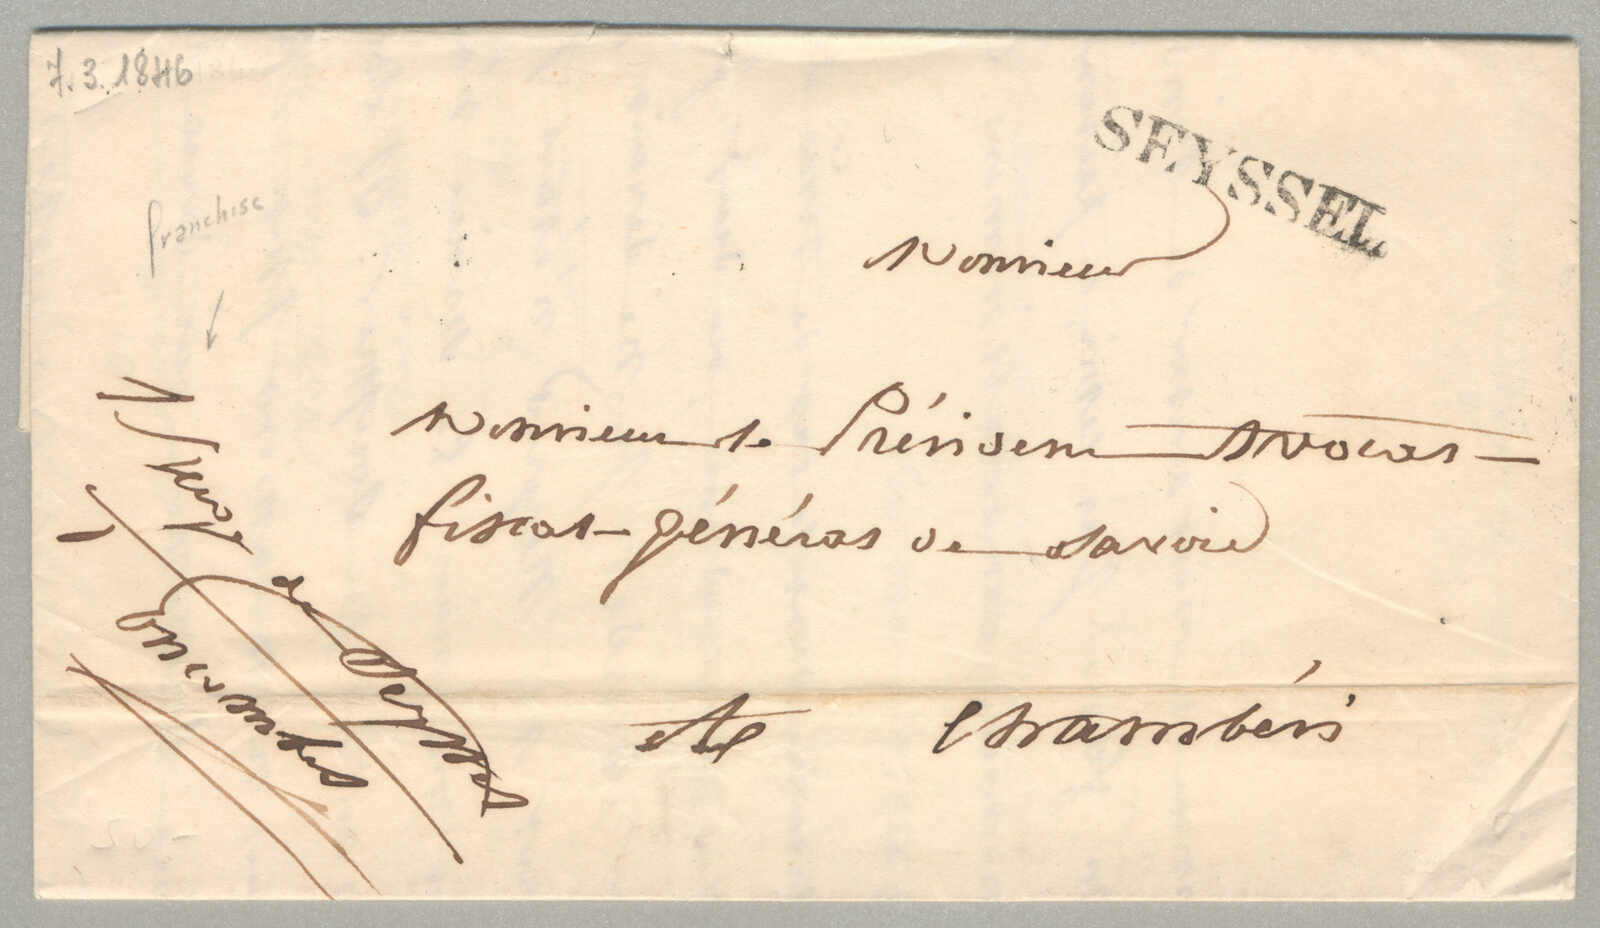 7.3.1846
franchise
SEYSSEL
Monsieur
Monsieur le Président Avocat
fiscal général de Savoie
à Chambéri
Le Juge
de Seyssel